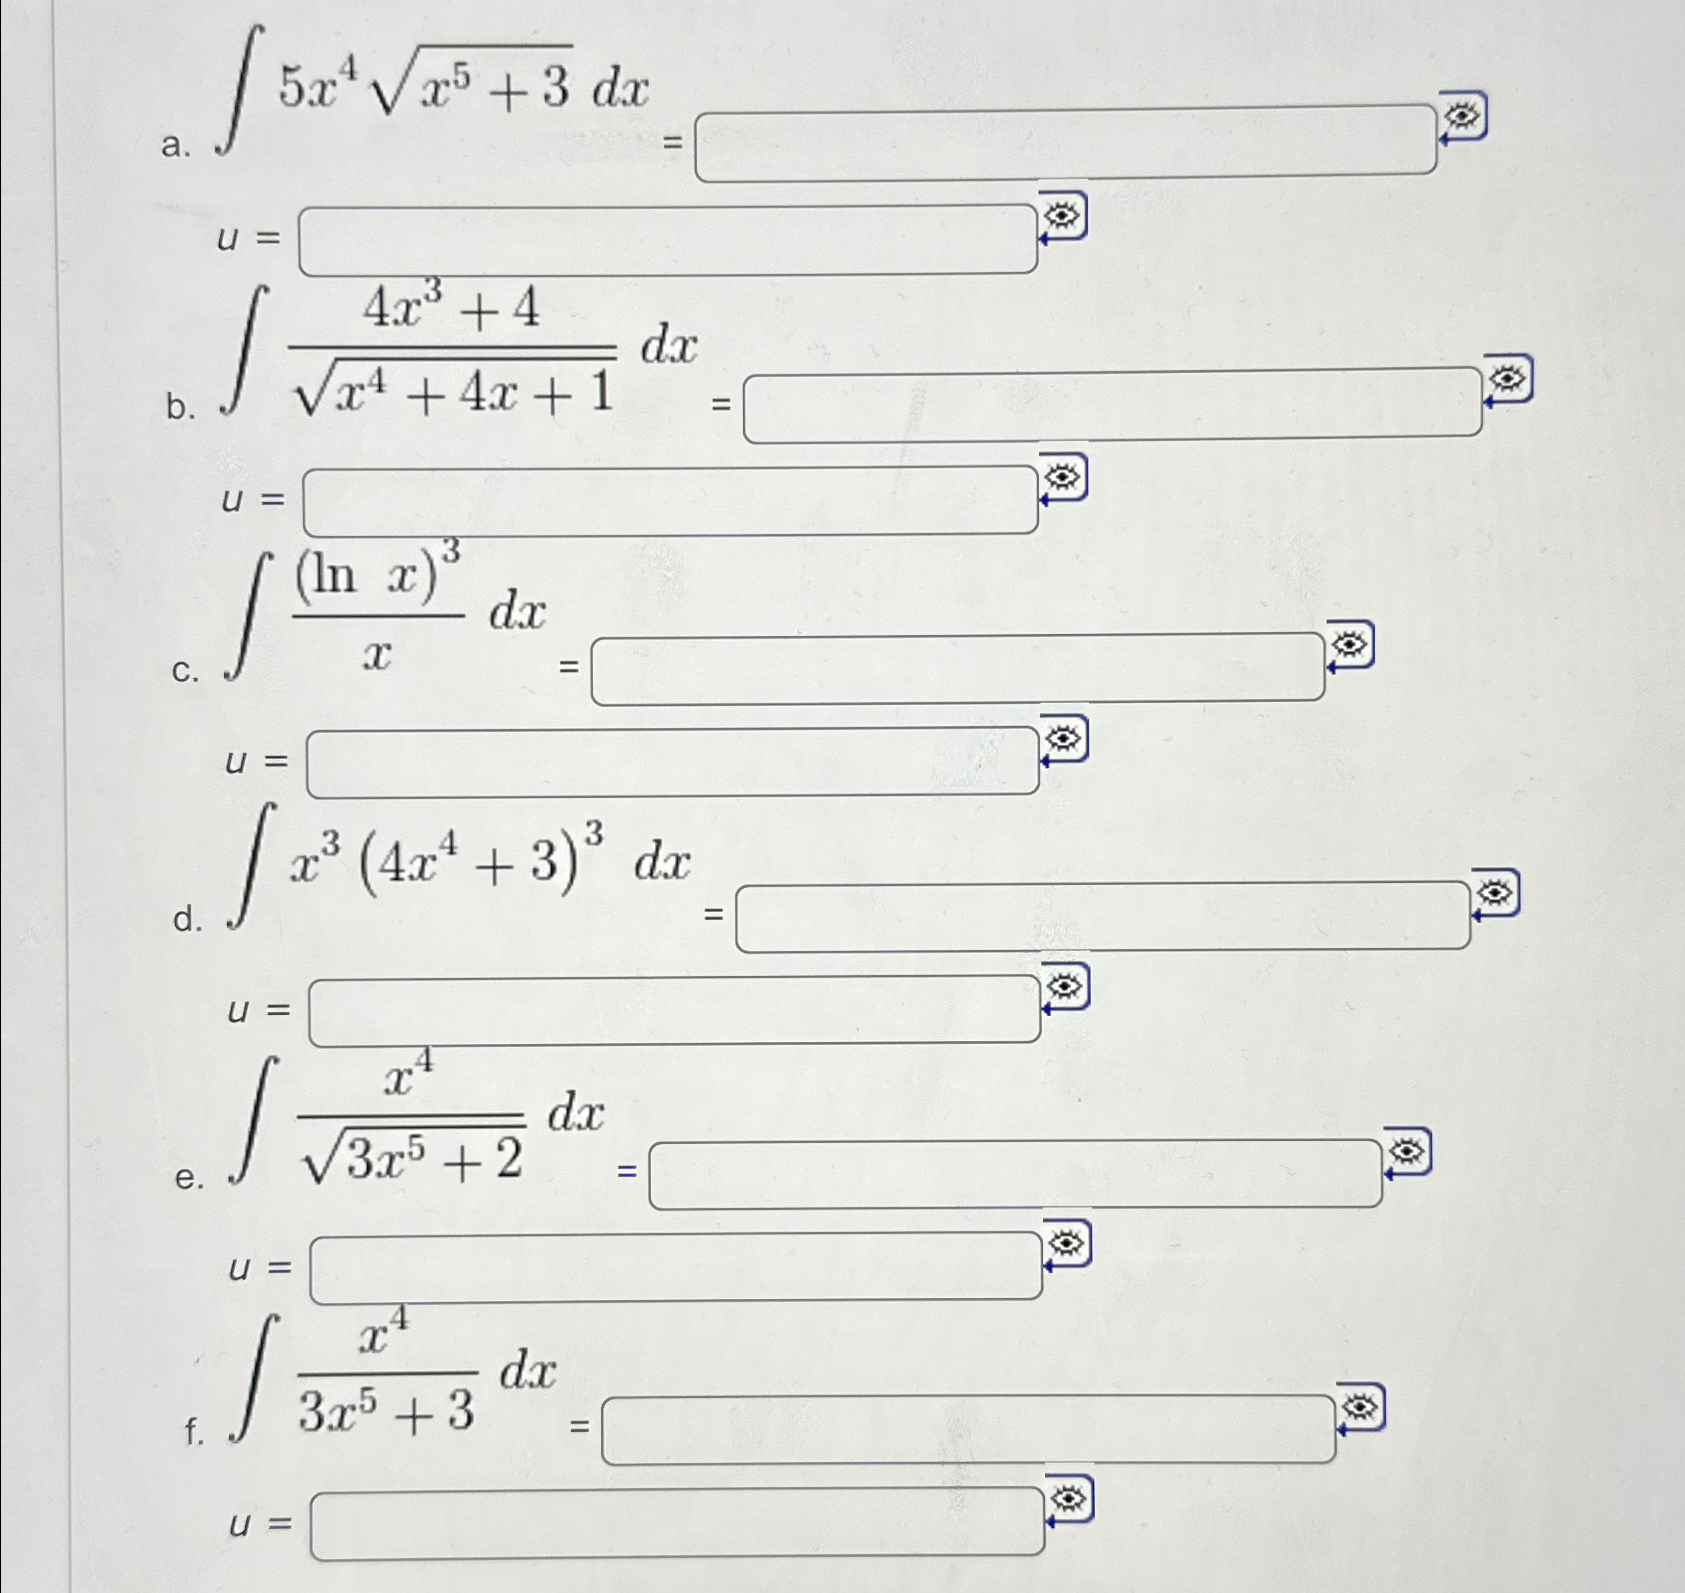 a. ∫ 5x⁴√(x⁵ + 3) dx =
u =
b. ∫ (4x³ + 4)/√(x⁴ + 4x + 1) dx =
u =
c. ∫ (ln x)³/x dx =
u =
d. ∫ x³(4x⁴ + 3)³ dx =
u =
e. ∫ x⁴/√(3x⁵ + 2) dx =
u =
f. ∫ x⁴/(3x⁵ + 3) dx =
u =